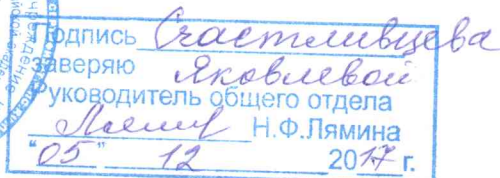 Подпись Счастливцева
заверяю Яковлевой
Руководитель общего отдела
Н.Ф.Лямина
"05" 12 2017 г.